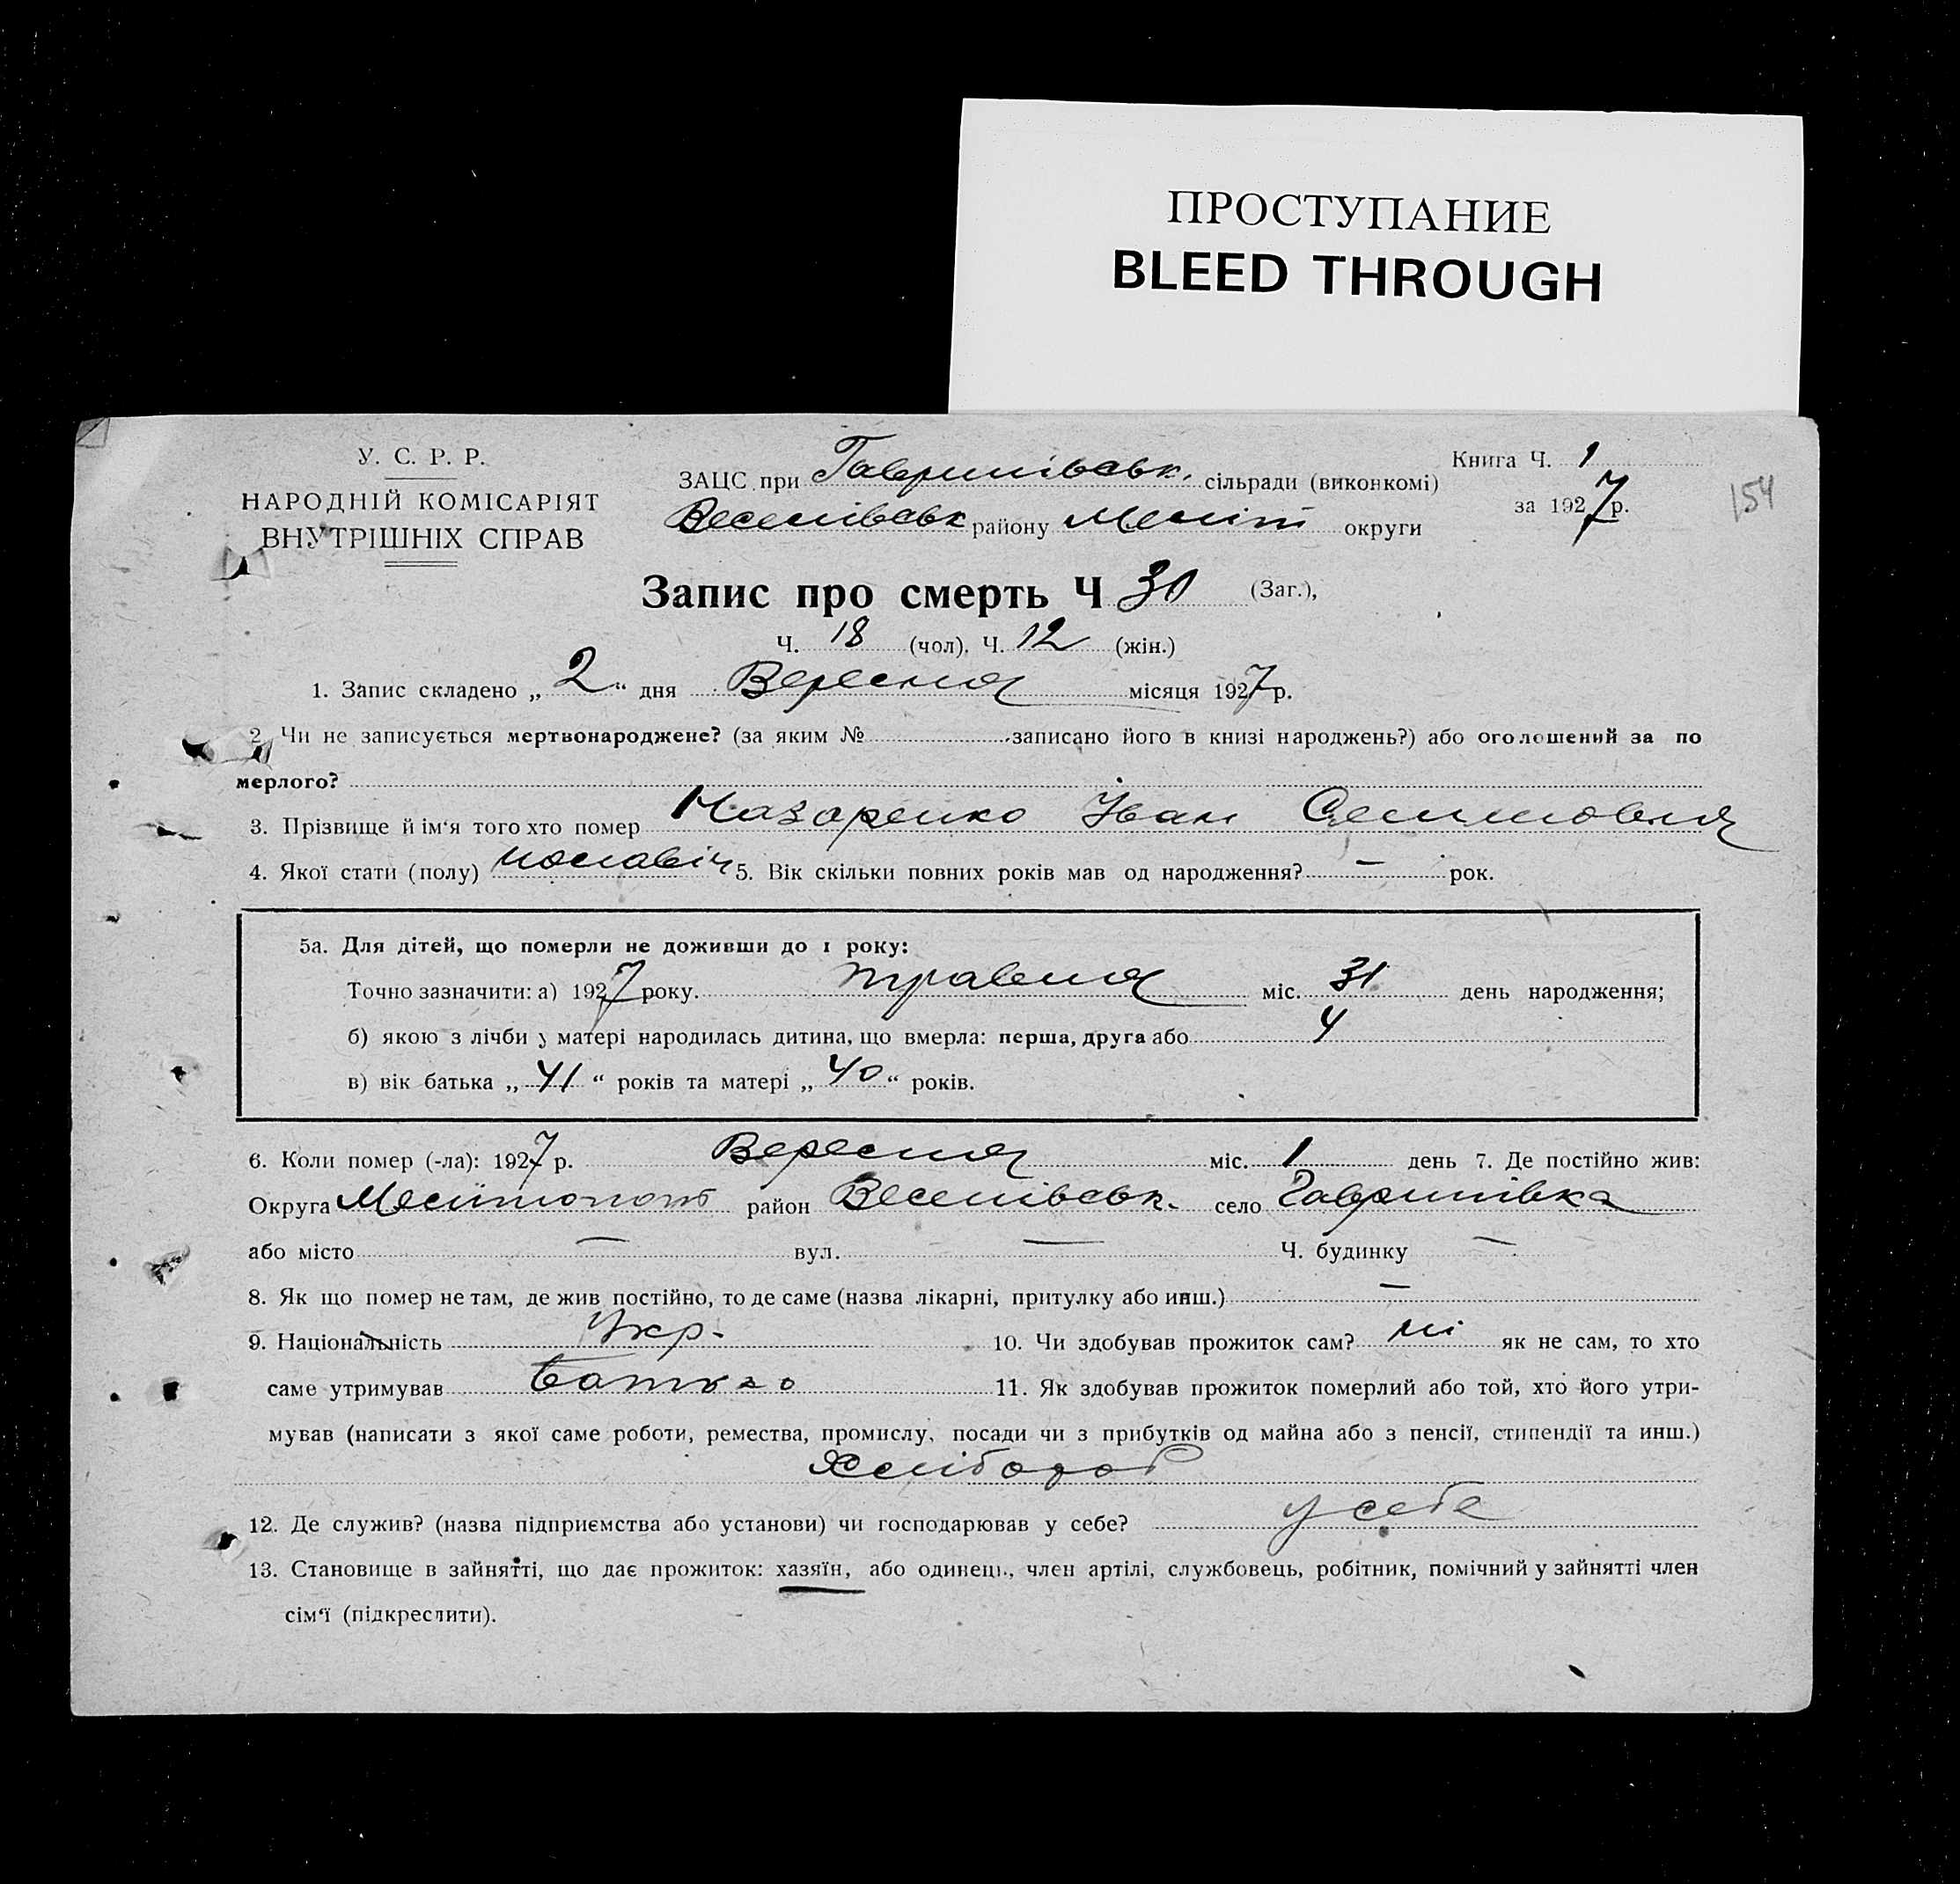 ПРОСТУПАНИЕ
BLEED THROUGH
У. С. Р. Р.
НАРОДНІЙ КОМІСАРІЯТ
ВНУТРІШНІХ СПРАВ
ЗАЦС при Гаврилівськ. сільради (виконкомі)
Веселівськ району Меліт округи
Книга Ч. 1
за 1927 р.
154
Запис про смерть Ч 30 (Заг.),
Ч. 18 (чол). Ч. 12 (жін.)
1. Запис складено „ 2 “ дня Вересня місяця 1927 р.
2. Чи не записується мертвонароджене? (за яким № записано його в книзі народжень?) або оголошений за по
мерлого?
3. Прізвище й ім‘я того хто помер Назаренко Іван
4. Якої стати (полу) 5. Вік скільки повних років мав од народження? — рок.
5а. Для дітей, що померли не доживши до 1 року:
Точно зазначити: а) 1927 року. травня міс. 31 день народження;
б) якою з лічби у матері народилась дитина, що вмерла: перша, друга або 4
в) вік батька „ 41 “ років та матері „ 40 “ років.
6. Коли помер (-ла): 1927 р. Вересня міс. 1 день 7. Де постійно жив:
Округа Мелітополь район Веселівськ. село Гаврилівка
або місто — вул. — Ч. будинку —
8. Як що помер не там, де жив постійно, то де саме (назва лікарні, притулку або инш.) —
9. Національність Укр. 10. Чи здобував прожиток сам? ні як не сам, то хто
саме утримував батько 11. Як здобував прожиток померлий або той, хто його утри-
мував (написати з якої саме роботи, ремества, промислу, посади чи з прибутків од майна або з пенсії, стипендії та инш.)
Хлібороб
12. Де служив? (назва підприємства або установи) чи господарював у себе? у себе
13. Становище в зайнятті, що дає прожиток: хазяїн, або одинець, член артілі, службовець, робітник, помічний у зайнятті член
сім‘ї (підкреслити).